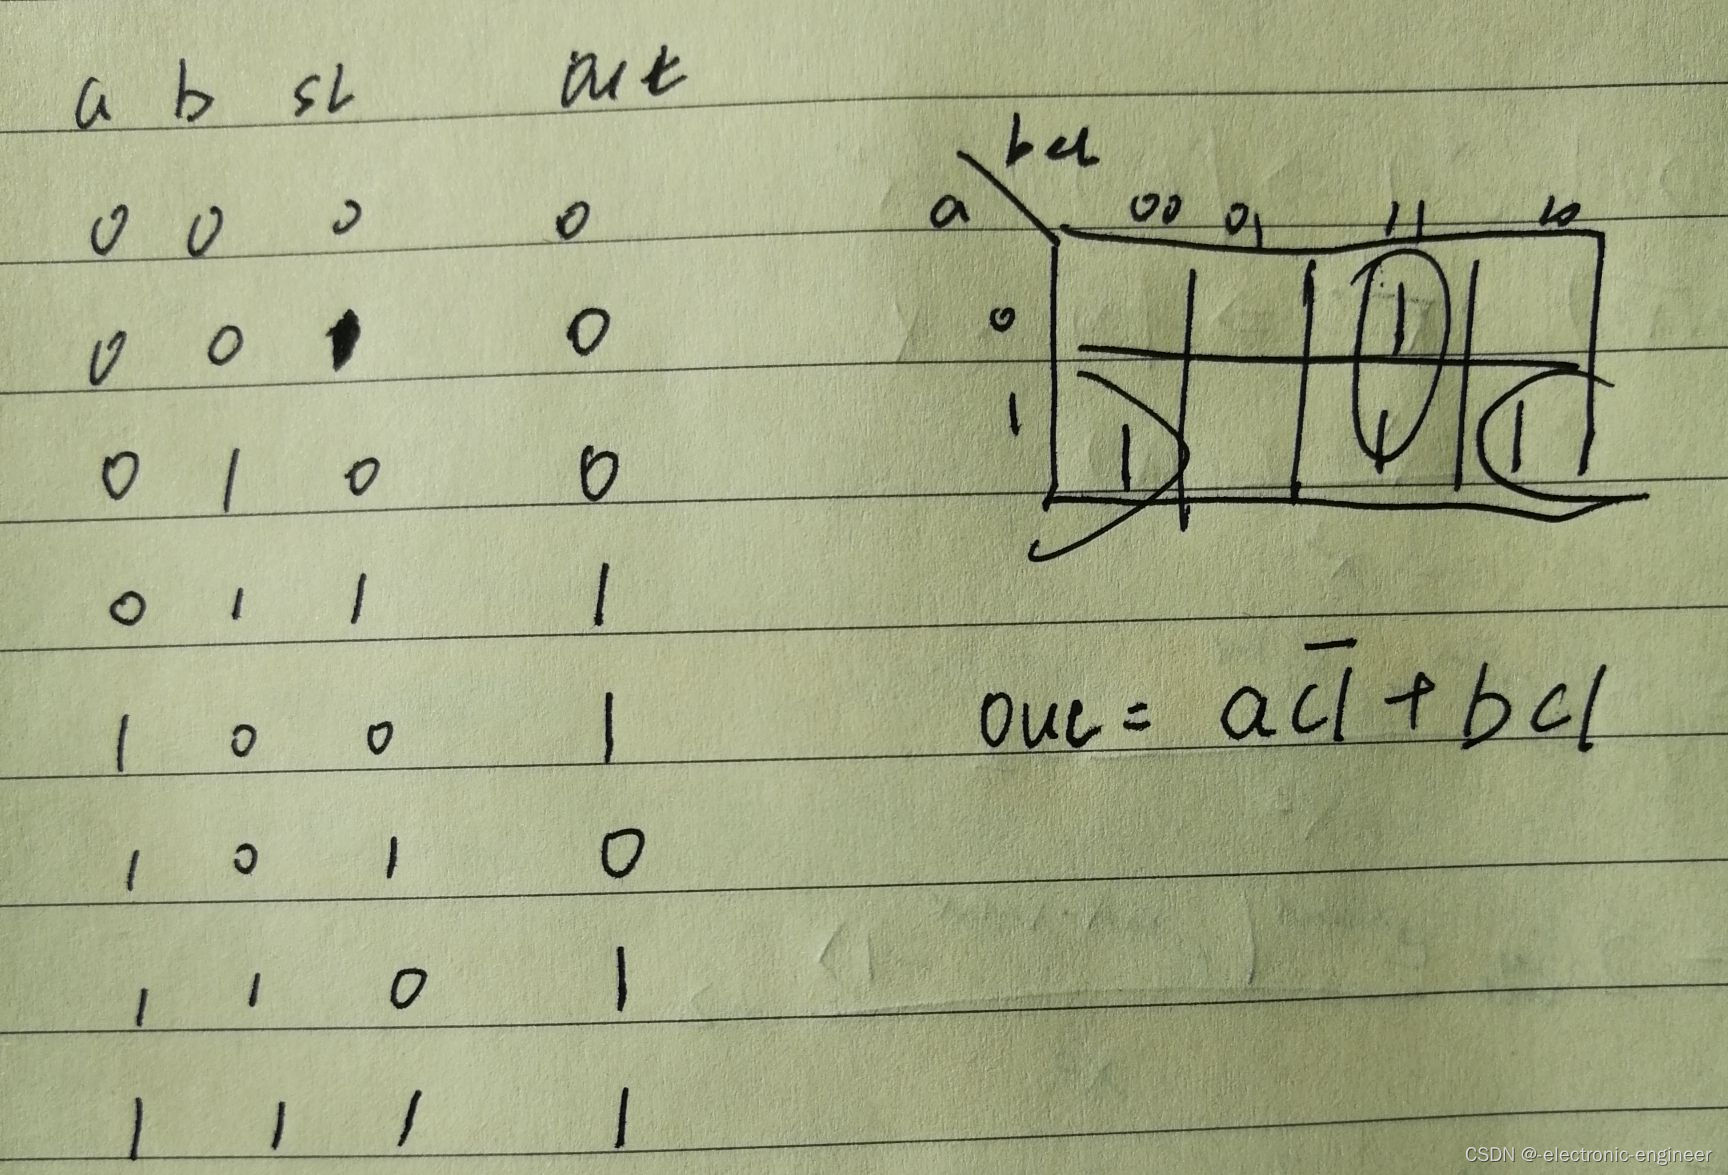 a b sl out
0 0 0 0
0 0 1 0
0 1 0 0
0 1 1 1
1 0 0 1
1 0 1 0
1 1 0 1
1 1 1 1
b cl
a 00 01 11 10
0 1
1 1 1 1
out = a c̅l̅ + b cl
CSDN @-electronic-engineer